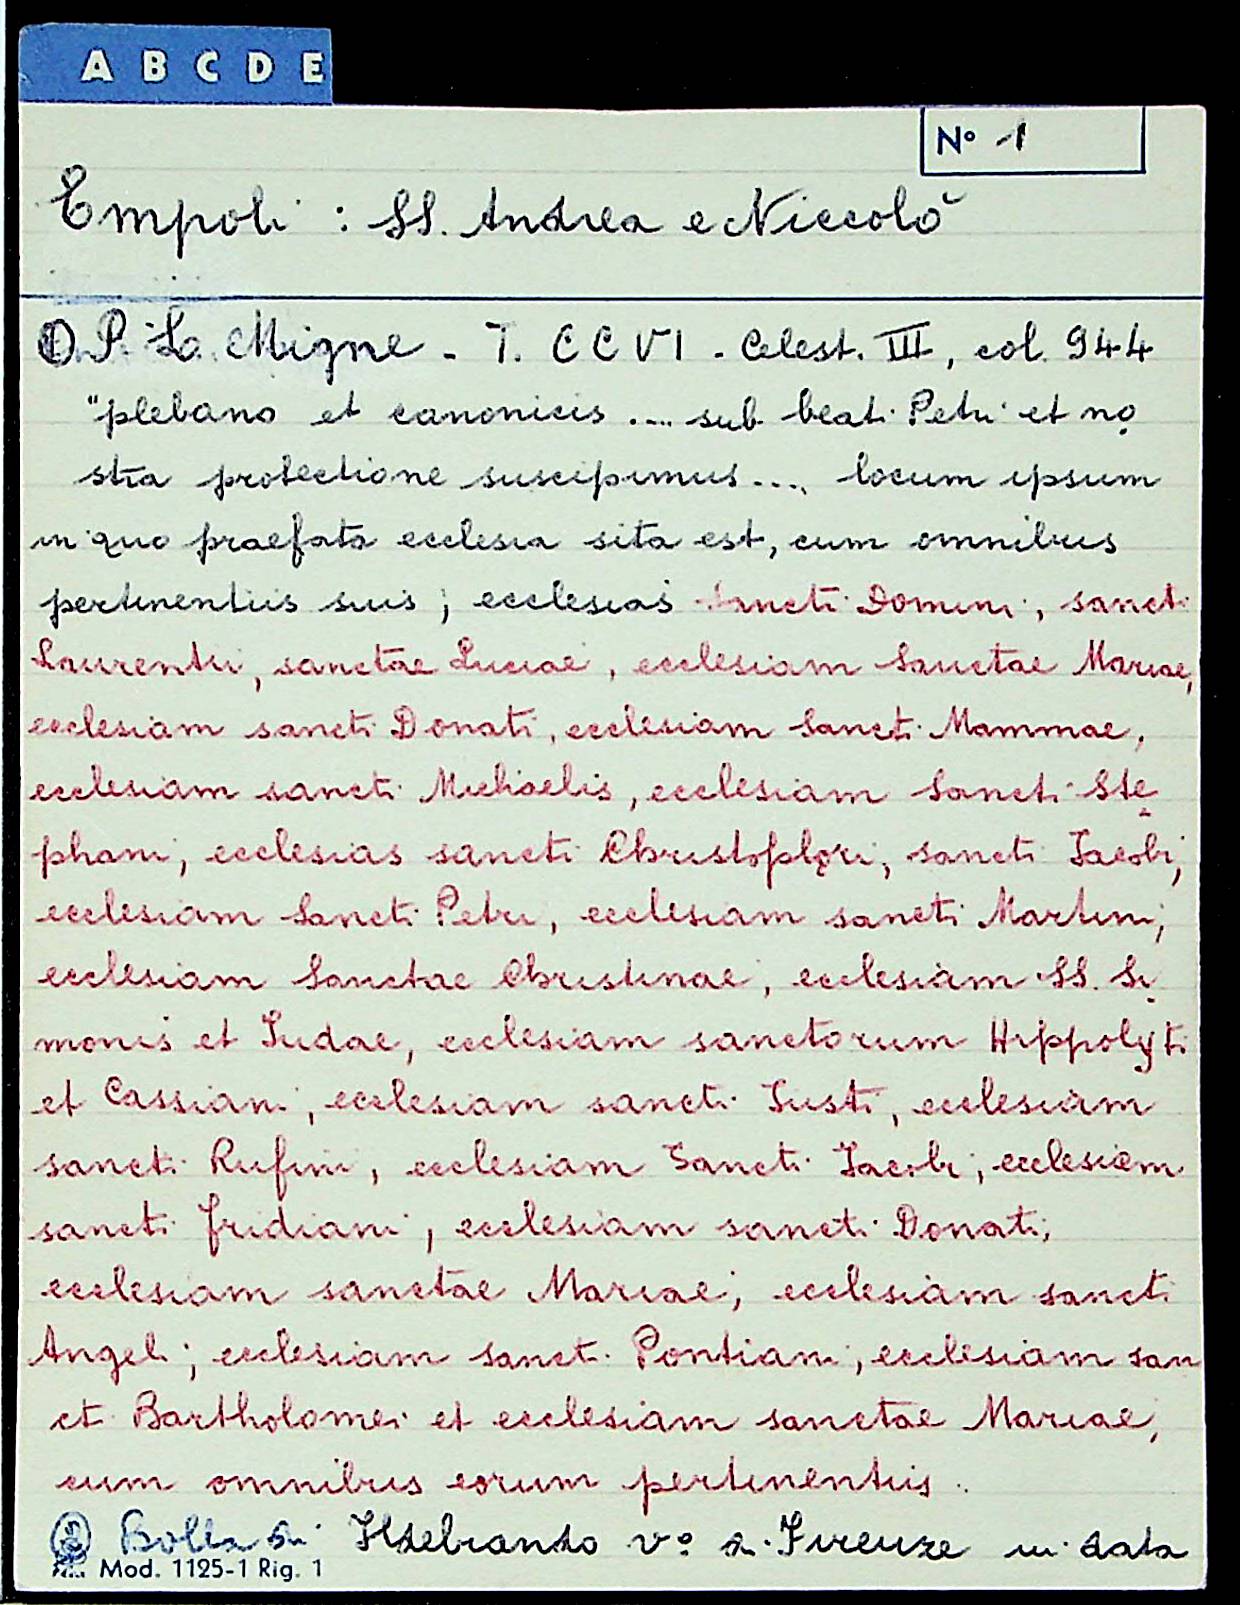 A B C D E
Nº 1
Empoli : SS. Andrea e Niccolò
① P. La. Migne - T. CCVI - Celest. III, col. 944
"plebano et canonicis .... sub beati Petri et no
stra protectione suscipimus .... locum ipsum
in quo praefata ecclesia sita est, cum omnibus
pertinentiis suis ; ecclesias sancti Domini, sancti
Laurentii, sanctae Luciae, ecclesiam Sanctae Mariae,
ecclesiam sancti Donati, ecclesiam Sancti Mammae,
ecclesiam sancti Michaelis, ecclesiam Sancti Ste
phani, ecclesias sancti Christophori, sancti Iacobi,
ecclesiam Sancti Petri, ecclesiam sancti Martini,
ecclesiam Sanctae Christinae, ecclesiam SS. Si
monis et Iudae, ecclesiam sanctorum Hippolyti
et Cassiani, ecclesiam sancti Iusti, ecclesiam
sancti Rufini, ecclesiam Sancti Iacobi, ecclesiam
sancti Fridiani, ecclesiam sancti Donati,
ecclesiam sanctae Mariae, ecclesiam sancti
Angeli, ecclesiam sancti Pontiani, ecclesiam san
cti Bartholomei et ecclesiam sanctae Mariae,
cum omnibus eorum pertinentiis.
② Bolla di Ildebrando vº di Firenze in data
Mod. 1125-1 Rig. 1